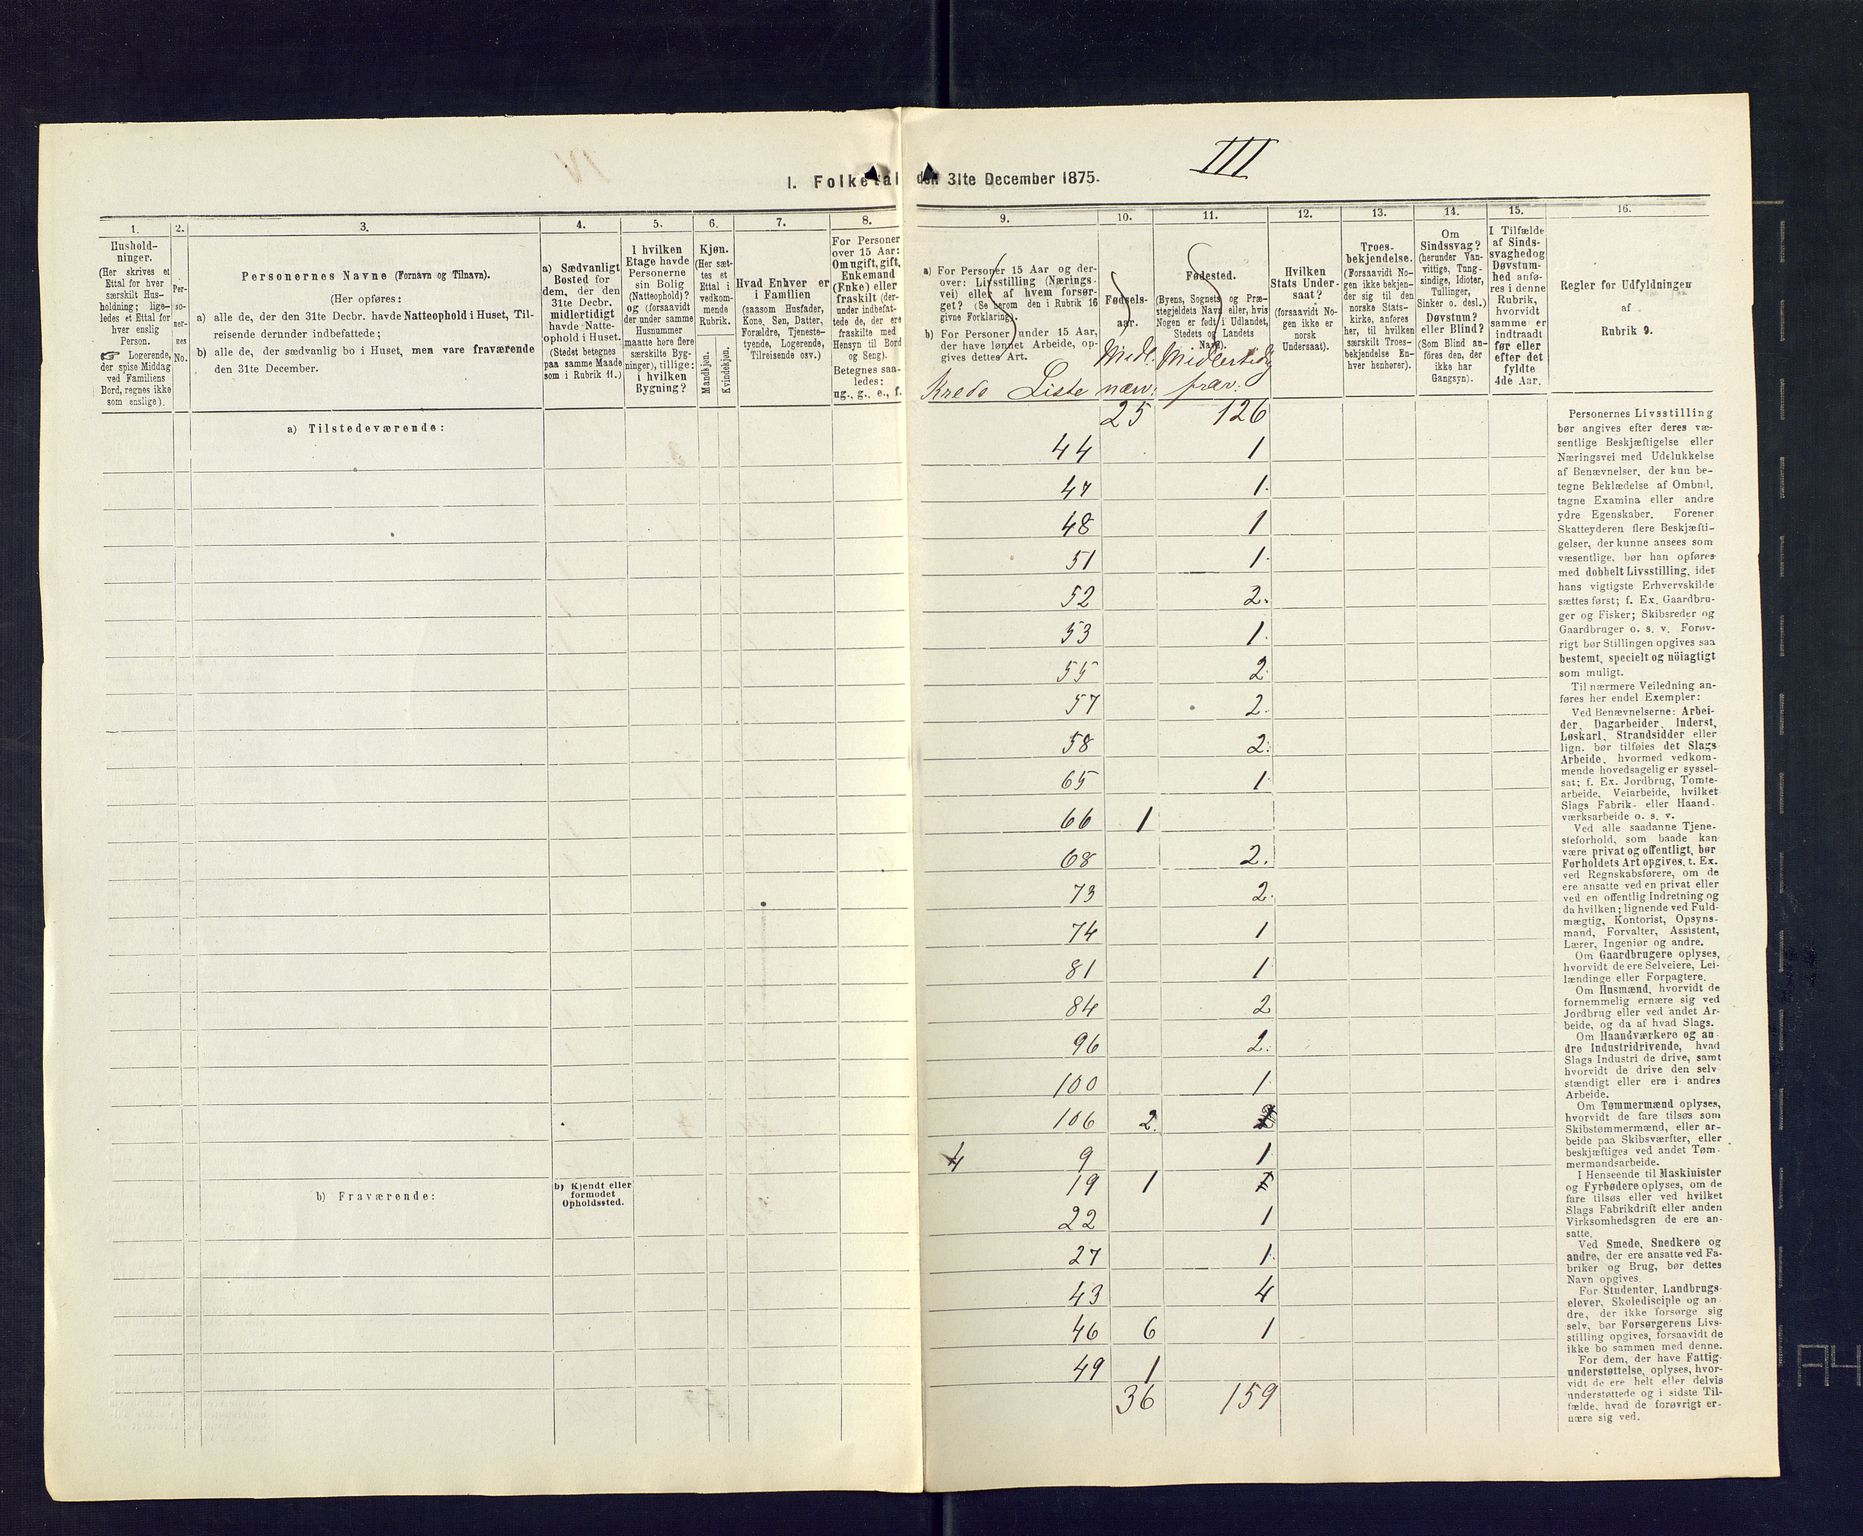 III
I. Folketal den 31te December 1875.
1.
Hushold-
ninger.
(Her skrives et
Ettal for hver
særskilt Hus-
holdning; lige-
ledes et Ettal for
hver enslig
Person.
☞ Logerende,
der spise Middag
ved Familiens
Bord, regnes ikke
som enslige).
2.
Per-
so-
ner-
nes
No.
3.
Personernes Navne (Fornavn og Tilnavn).
(Her opføres:
a) alle de, der den 31te Decbr. havde Natteophold i Huset, Til-
reisende derunder indbefattede;
b) alle de, der sædvanlig bo i Huset, men vare fraværende
den 31te December.
4.
a) Sædvanligt
Bosted for
dem, der den
31te Decbr.
midlertidigt
havde Natte-
ophold i Huset.
(Stedet betegnes
paa samme Maade
som i Rubrik 11.)
5.
I hvilken
Etage havde
Personerne
sin Bolig
(Natteophold)?
og (forsaavidt
der under samme
Husnummer
maatte høre flere
særskilte Byg-
ninger), tillige:
i hvilken
Bygning?
6.
Kjøn.
(Her sæt-
tes et
Ettal i
vedkom-
mende
Rubrik.
Mandkjøn.
Kvindekjøn.
7.
Hvad Enhver er
i Familien
(saasom Husfader,
Kone, Søn, Datter,
Forældre, Tjeneste-
tyende, Logerende,
Tilreisende osv.)
8.
For Personer
over 15 Aar:
Om ugift, gift,
Enkemand
(Enke) eller
fraskilt (der-
under indbefat-
tede de, der ere
fraskilte med
Hensyn til Bord
og Seng).
Betegnes saa-
ledes:
ug., g., e., f.
9.
a) For Personer 15 Aar og der-
over: Livsstilling (Nærings-
vei) eller af hvem forsør-
get? (Se herom den i Rubrik 16
givne Forklaring).
b) For Personer under 15 Aar,
der have lønnet Arbeide, op-
gives dettes Art.
Kreds Liste
10.
Fødsels-
aar.
Midl.
nærv:
11.
Fødested.
(Byens, Sognets og Præ-
stegjeldets Navn eller, hvis
Nogen er født i Udlandet,
Stedets og Landets
Navn).
Midlertidig
frav:
12.
Hvilken
Stats Under-
saat?
(forsaavidt No-
gen ikke er
norsk
Undersaat).
13.
Troes-
bekjendelse.
(Forsaavidt No-
gen ikke bekjen-
der sig til den
norske Stats-
kirke, anføres
her, til hvilken
særskilt Troes-
bekjendelse En-
hver henhører).
14.
Om
Sindssvag?
(herunder Van-
vittige, Tung-
sindige, Idioter,
Tullinger,
Sinker o. desl.)
Døvstum?
eller Blind?
(Som Blind an-
føres den, der
ikke har
Gangsyn).
15.
I Tilfælde
af Sinds-
svaghed og
Døvstum-
hed anfø-
res i denne
Rubrik,
hvorvidt
samme er
indtraadt
før eller
efter det
fyldte
4de Aar.
16.
Regler for Udfyldningen
af
Rubrik 9.
a) Tilstedeværende:
25 126
44 1
47 1.
48 1
51 1.
52 2.
53 1.
55 2
57 2.
58 2.
65 1
66 1
68 2.
73 2.
74 1
81 1
84 2
96 2.
100 1
106 2.
4 9 1
19 1
22 1
27 1.
43 4
46 6 1
49 1
36 159
b) Fraværende:
b) Kjendt eller
formodet
Opholdssted.
Personernes Livsstilling
bør angives efter deres væ-
sentlige Beskjæftigelse eller
Næringsvei med Udelukkelse
af Benævnelser, der kun be-
tegne Beklædelse af Ombud,
tagne Examina eller andre
ydre Egenskaber. Forener
Skatteyderen flere Beskjæfti-
gelser, der kunne ansees som
væsentlige, bør han opføres
med dobbelt Livsstilling, idet
hans vigtigste Erhvervskilde
sættes først; f. Ex. Gaardbru-
ger og Fisker; Skibsreder og
Gaardbruger o. s. v. Forøv-
rigt bør Stillingen opgives saa
bestemt, specielt og nöiagtigt
som muligt.
Til nærmere Veiledning an-
føres her endel Exempler:
Ved Benævnelserne: Arbei-
der, Dagarbeider, Inderst,
Løskarl, Strandsidder eller
lign. bør tilføies det Slags
Arbeide, hvormed vedkom-
mende hovedsagelig er syssel-
sat; f. Ex. Jordbrug, Tomte-
arbeide, Veiarbeide, hvilket
Slags Fabrik- eller Haand-
værksarbeide o. s. v.
Ved alle saadanne Tjene-
steforhold, som baade kan
være privat og offentligt, bør
Forholdets Art opgives, t. Ex.
ved Regnskabsførere, om de
ere ansatte ved en privat eller
ved en offentlig Indretning og
da hvilken; lignende ved Fuld-
mægtig, Kontorist, Opsyns-
mand, Forvalter, Assistent,
Lærer, Ingeniør og andre.
Om Gaardbrugere oplyses,
hvorvidt de ere Selveiere, Lei-
lændinge eller Forpagtere.
Om Husmænd, hvorvidt de
fornemmelig ernære sig ved
Jordbrug eller ved andet Ar-
beide, og da af hvad Slags.
Om Haandværkere og an-
dre Industridrivende, hvad
Slags Industri de drive, samt
hvorvidt de drive den selv-
stændigt eller ere i andres
Arbeide.
Om Tømmermænd oplyses,
hvorvidt de fare tilsøs som
Skibstømmermænd, eller ar-
beide paa Skibsværfter, eller
beskjæftiges ved andet Tøm-
mermandsarbeide.
I Henseende til Maskinister
og Fyrbødere oplyses, om de
fare tilsøs eller ved hvilket
Slags Fabrikdrift eller anden
Virksomhedsgren de ere an-
satte.
Ved Smede, Snedkere og
andre, der ere ansatte ved Fa-
briker og Brug, bør dettes
Navn opgives.
For Studenter, Landbrugs-
elever, Skoledisciple og an-
dre, der ikke forsørge sig
selv, bør Forsørgerens Livs-
stilling opgives, forsaavidt de
ikke bo sammen med denne.
For dem, der have Fattig-
understøttelse, oplyses, hvor-
vidt de ere helt eller delvis
understøttede og i sidste Til-
fælde, hvad de forøvrigt er-
nære sig ved.